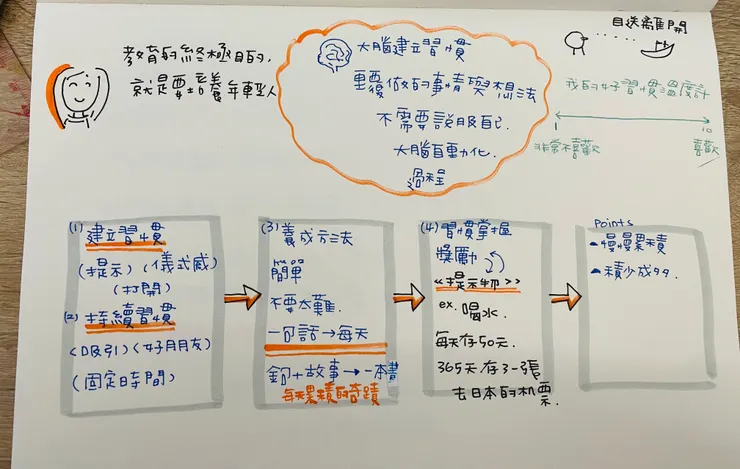 教育的終極目的,
就是要培養年輕人
大腦建立習慣
重覆做的事情與想法
不需要說服自己.
大腦自動化.
過程
目送離開
我的好習慣溫度計
1
10
非常不喜歡
喜歡
(1) 建立習慣
(提示) (儀式感)
(打開)
(2) 持續習慣
<吸引> (好朋友)
(固定時間)
(3) 養成方法
簡單
不要太難.
一句話→每天
金句+故事→一本書
每天累積的奇蹟
(4) 習慣掌握
獎勵
<<提示物>>
ex. 喝水.
每天存50元.
365天存3-張
去日本的机票.
Points
慢慢累積
積少成多.